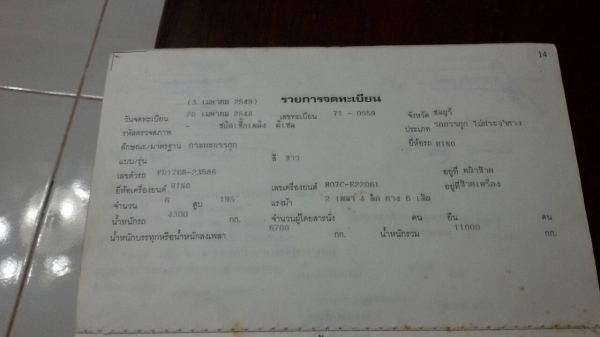 14
(3 เมษายน 2549) รายการจดทะเบียน
วันจดทะเบียน 28 เมษายน 2548 เลขทะเบียน 71 - 0559 จังหวัด ชลบุรี
รหัสตรวจสภาพ - ชนิดเชื้อเพลิง ดีเซล ประเภท รถบรรทุก ไม่ประจำทาง
ลักษณะ/มาตรฐาน กระบะบรรทุก ยี่ห้อรถ HINO
แบบ/รุ่น สี ขาว
เลขตัวรถ FD176B-23586 อยู่ที่ หน้าซ้าย
ยี่ห้อเครื่องยนต์ HINO เลขเครื่องยนต์ H07C-E22061 อยู่ที่ ซ้ายเครื่อง
จำนวน 6 สูบ 195 แรงม้า 2 เพลา 4 ล้อ ยาง 6 เส้น
น้ำหนักรถ 4300 กก. จำนวนผู้โดยสารนั่ง คน ยืน คน
น้ำหนักบรรทุกหรือน้ำหนักลงเพลา 6700 กก. น้ำหนักรวม 11000 กก.